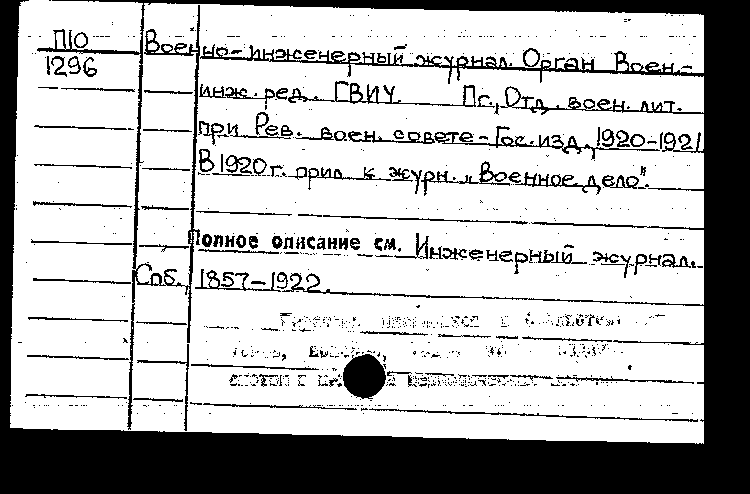 П10
1296
Военно-инженерный журнал. Орган Воен.-
инж. ред. ГВИУ. Пг., Отд. воен. лит.
при Рев. воен. совете - Гос. изд., 1920-1921
В 1920 г. прил. к журн. „Военное дело".
Полное описание см. Инженерный журнал.
Спб., 1857-1922.